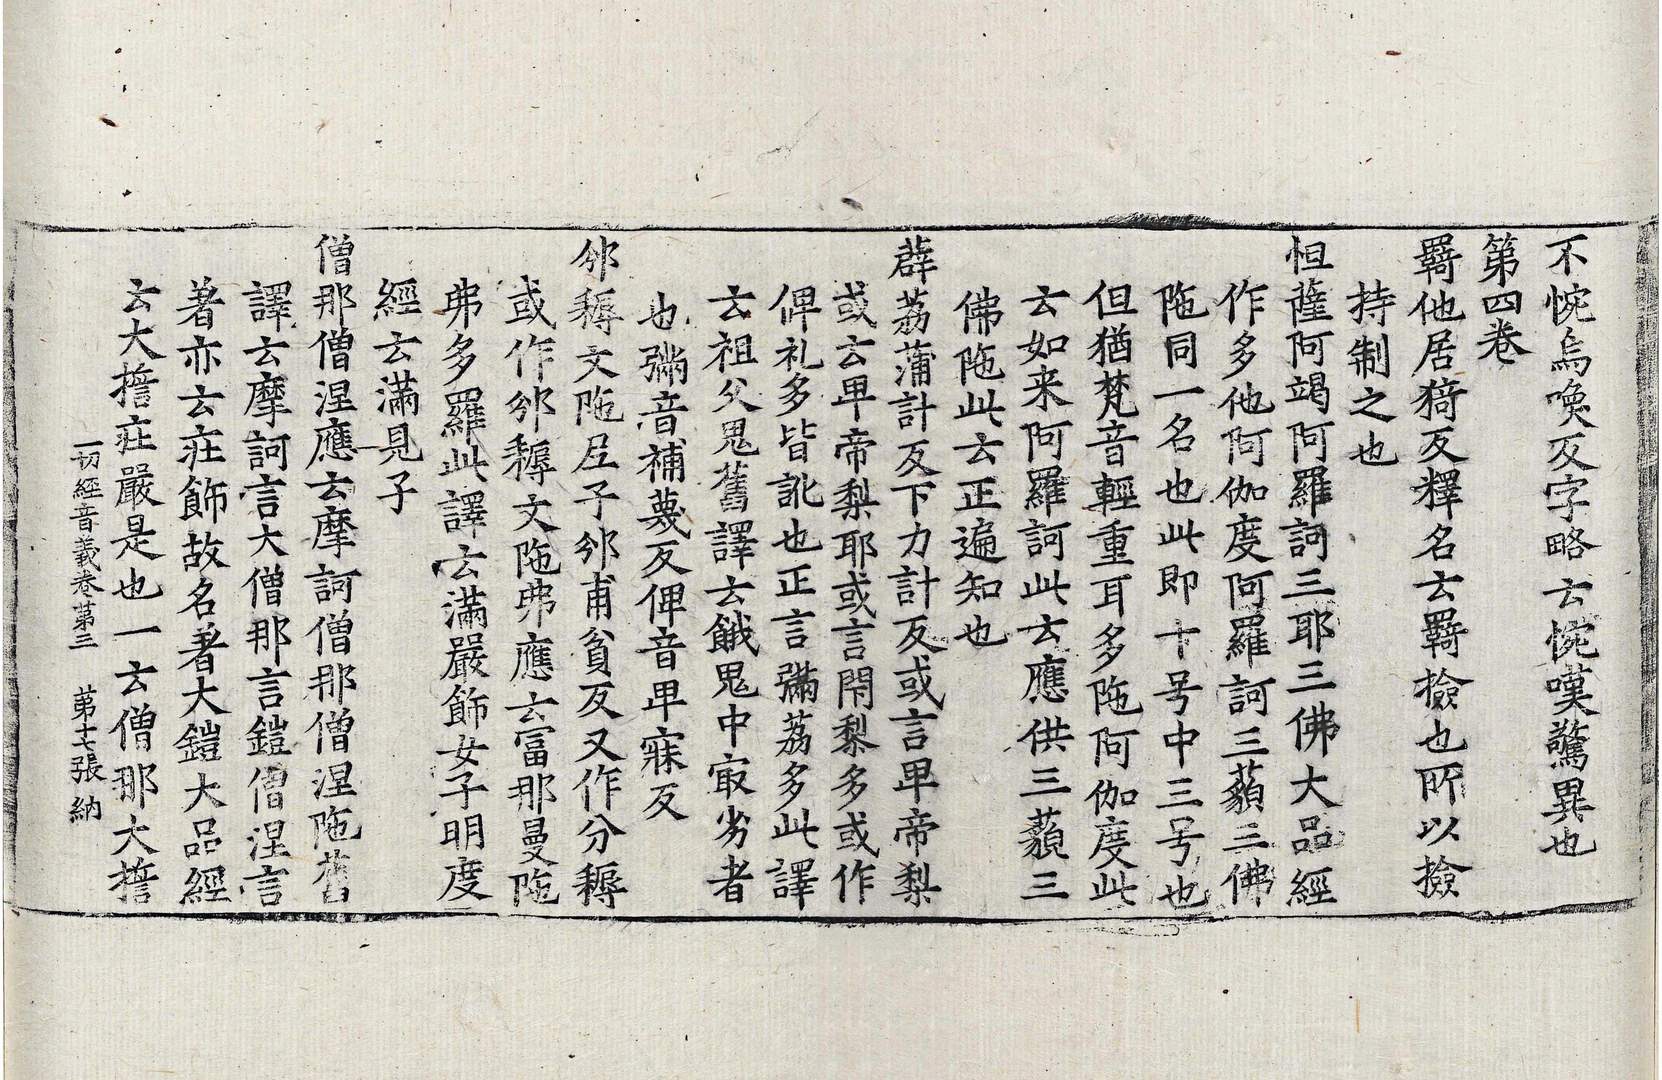 不惋烏喚反字略云惋嘆驚異也
第四卷
羇他居猗反釋名云羇撿也所以撿
持制之也
怛薩阿竭阿羅訶三耶三佛大品經
作多他阿伽度阿羅訶三藐三佛
陁同一名也此即十号中三号也
但猶梵音輕重耳多陁阿伽度此
云如来阿羅訶此云應供三藐三
佛陁此云正遍知也
薜荔蒲計反下力計反或言卑帝梨
或云卑帝梨耶或言閇黎多或作
俾礼多皆訛也正言彌荔多此譯
云祖父鬼舊譯云餓鬼中㝡劣者
也彌音補蔑反俾音卑寐反
邠耨文陁尼子邠甫貧反又作分耨
或作邠耨文陁弗應云富那曼陁
弗多羅此譯云滿嚴飾女子明度
經云滿見子
僧那僧涅應云摩訶僧那僧涅陁舊
譯云摩訶言大僧那言鎧僧涅言
著亦云莊飾故名著大鎧大品經
云大誓莊嚴是也一云僧那大誓
一切經音義卷第三　第十七張　納